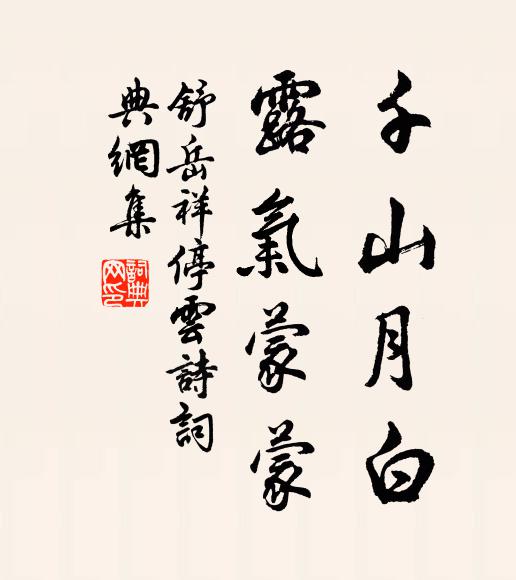 千山月白
露氣蒙蒙
舒岳祥停雲詩詞
典網集
詞典
网印